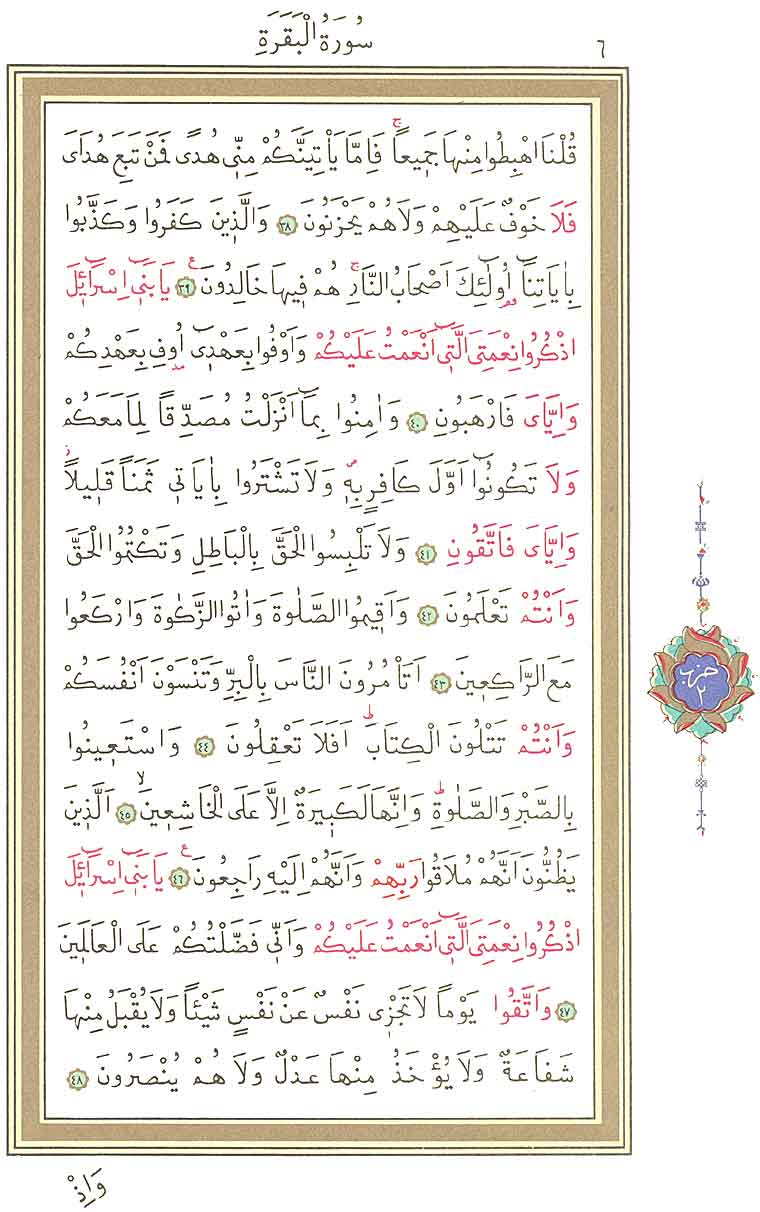 ٦
سُورَةُ الْبَقَرَةِ
قُلْنَا اهْبِطُوا مِنْهَا جَمٖيعاًۚ فَاِمَّا يَأْتِيَنَّكُمْ مِنّٖى هُدًى فَمَنْ تَبِعَ هُدَاىَ
فَلَا خَوْفٌ عَلَيْهِمْ وَلَا هُمْ يَحْزَنُونَ ٣٨ وَالَّذٖينَ كَفَرُوا وَكَذَّبُوا
بِاٰيَاتِنَٓا اُو۬لٰٓئِكَ اَصْحَابُ النَّارِۚ هُمْ فٖيهَا خَالِدُونَ ع ٣٩ يَا بَنٖٓى اِسْرَٓائٖلَ
اذْكُرُوا نِعْمَتِىَ الَّتٖٓى اَنْعَمْتُ عَلَيْكُمْ وَاَوْفُوا بِعَهْدٖٓى اُو۫فِ بِعَهْدِكُمْ
وَاِيَّاىَ فَارْهَبُونِ ٤٠ وَاٰمِنُوا بِمَٓا اَنْزَلْتُ مُصَدِّقاً لِمَا مَعَكُمْ
وَلَا تَكُونُٓوا اَوَّلَ كَافِرٍ بِهٖ وَلَا تَشْتَرُوا بِاٰيَاتٖى ثَمَناً قَلٖيلاً
وَاِيَّاىَ فَاتَّقُونِ ٤١ وَلَا تَلْبِسُوا الْحَقَّ بِالْبَاطِلِ وَتَكْتُمُوا الْحَقَّ
وَاَنْتُمْ تَعْلَمُونَ ٤٢ وَاَقٖيمُوا الصَّلٰوةَ وَاٰتُوا الزَّكٰوةَ وَارْكَعُوا
مَعَ الرَّاكِعٖينَ ٤٣ اَتَأْمُرُونَ النَّاسَ بِالْبِرِّ وَتَنْسَوْنَ اَنْفُسَكُمْ
وَاَنْتُمْ تَتْلُونَ الْكِتَابَؕ اَفَلَا تَعْقِلُونَ ٤٤ وَاسْتَعٖينُوا
بِالصَّبْرِ وَالصَّلٰوةِؕ وَاِنَّهَا لَكَبٖيرَةٌ اِلَّا عَلَى الْخَاشِعٖينَۙ ٤٥ اَلَّذٖينَ
يَظُنُّونَ اَنَّهُمْ مُلَاقُوا رَبِّهِمْ وَاَنَّهُمْ اِلَيْهِ رَاجِعُونَ ع ٤٦ يَا بَنٖٓى اِسْرَٓائٖلَ
اذْكُرُوا نِعْمَتِىَ الَّتٖٓى اَنْعَمْتُ عَلَيْكُمْ وَاَنّٖى فَضَّلْتُكُمْ عَلَى الْعَالَمٖينَ
٤٧ وَاتَّقُوا يَوْماً لَا تَجْزٖى نَفْسٌ عَنْ نَفْسٍ شَيْئاً وَلَا يُقْبَلُ مِنْهَا
شَفَاعَةٌ وَلَا يُؤْخَذُ مِنْهَا عَدْلٌ وَلَا هُمْ يُنْصَرُونَ ٤٨
حزب
٢
وَاِذْ